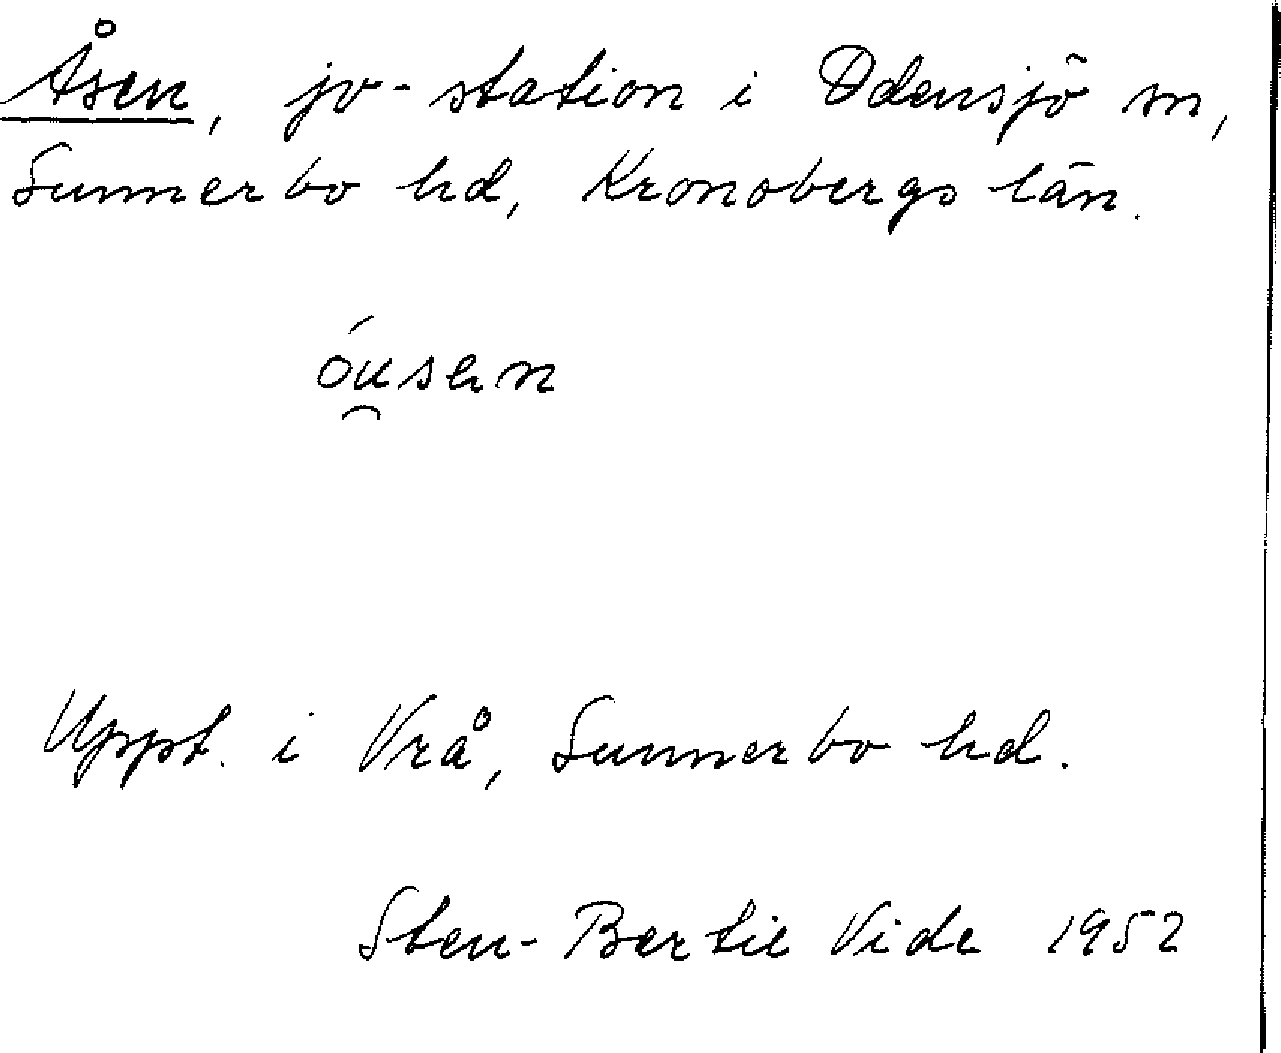 Åsen, jv-station i Odensjö sn,
Sunnerbo hd, Kronobergs län.
óu̯sen
Uppt. i Vrå, Sunnerbo hd.
Sten-Bertil Vide 1952